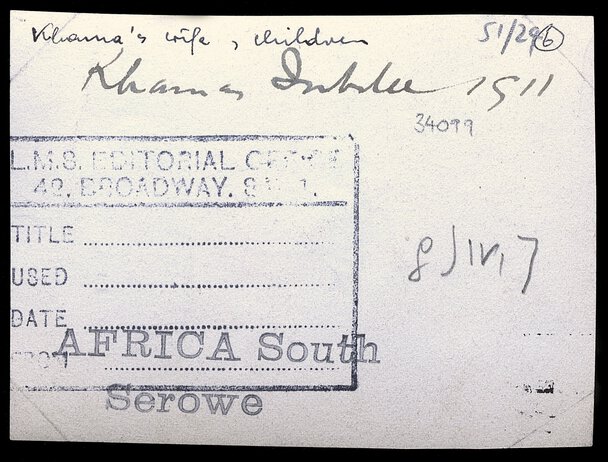 Khama's wife, children
51/29 6
Khamas Jubilee 1911
34099
L.M.S. EDITORIAL OFFICE
42, BROADWAY, S.W.1.
TITLE
USED
DATE
AFRICA South
Serowe